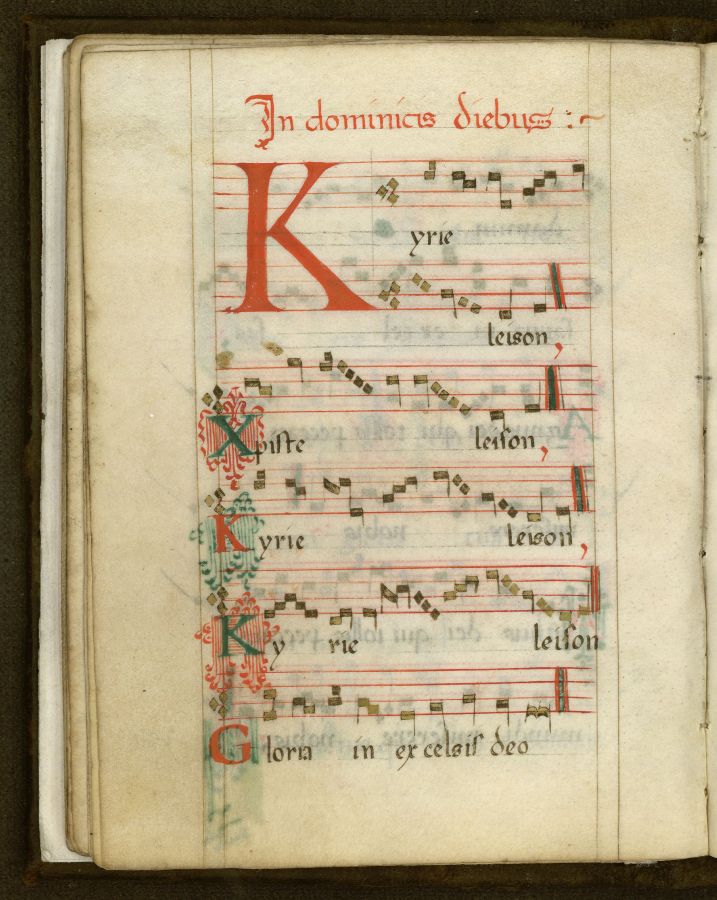 In dominicis diebus :~
Kyrie
leison,
Xpiste leison,
Kyrie leison,
Ky rie leison
Gloria in excelsis deo